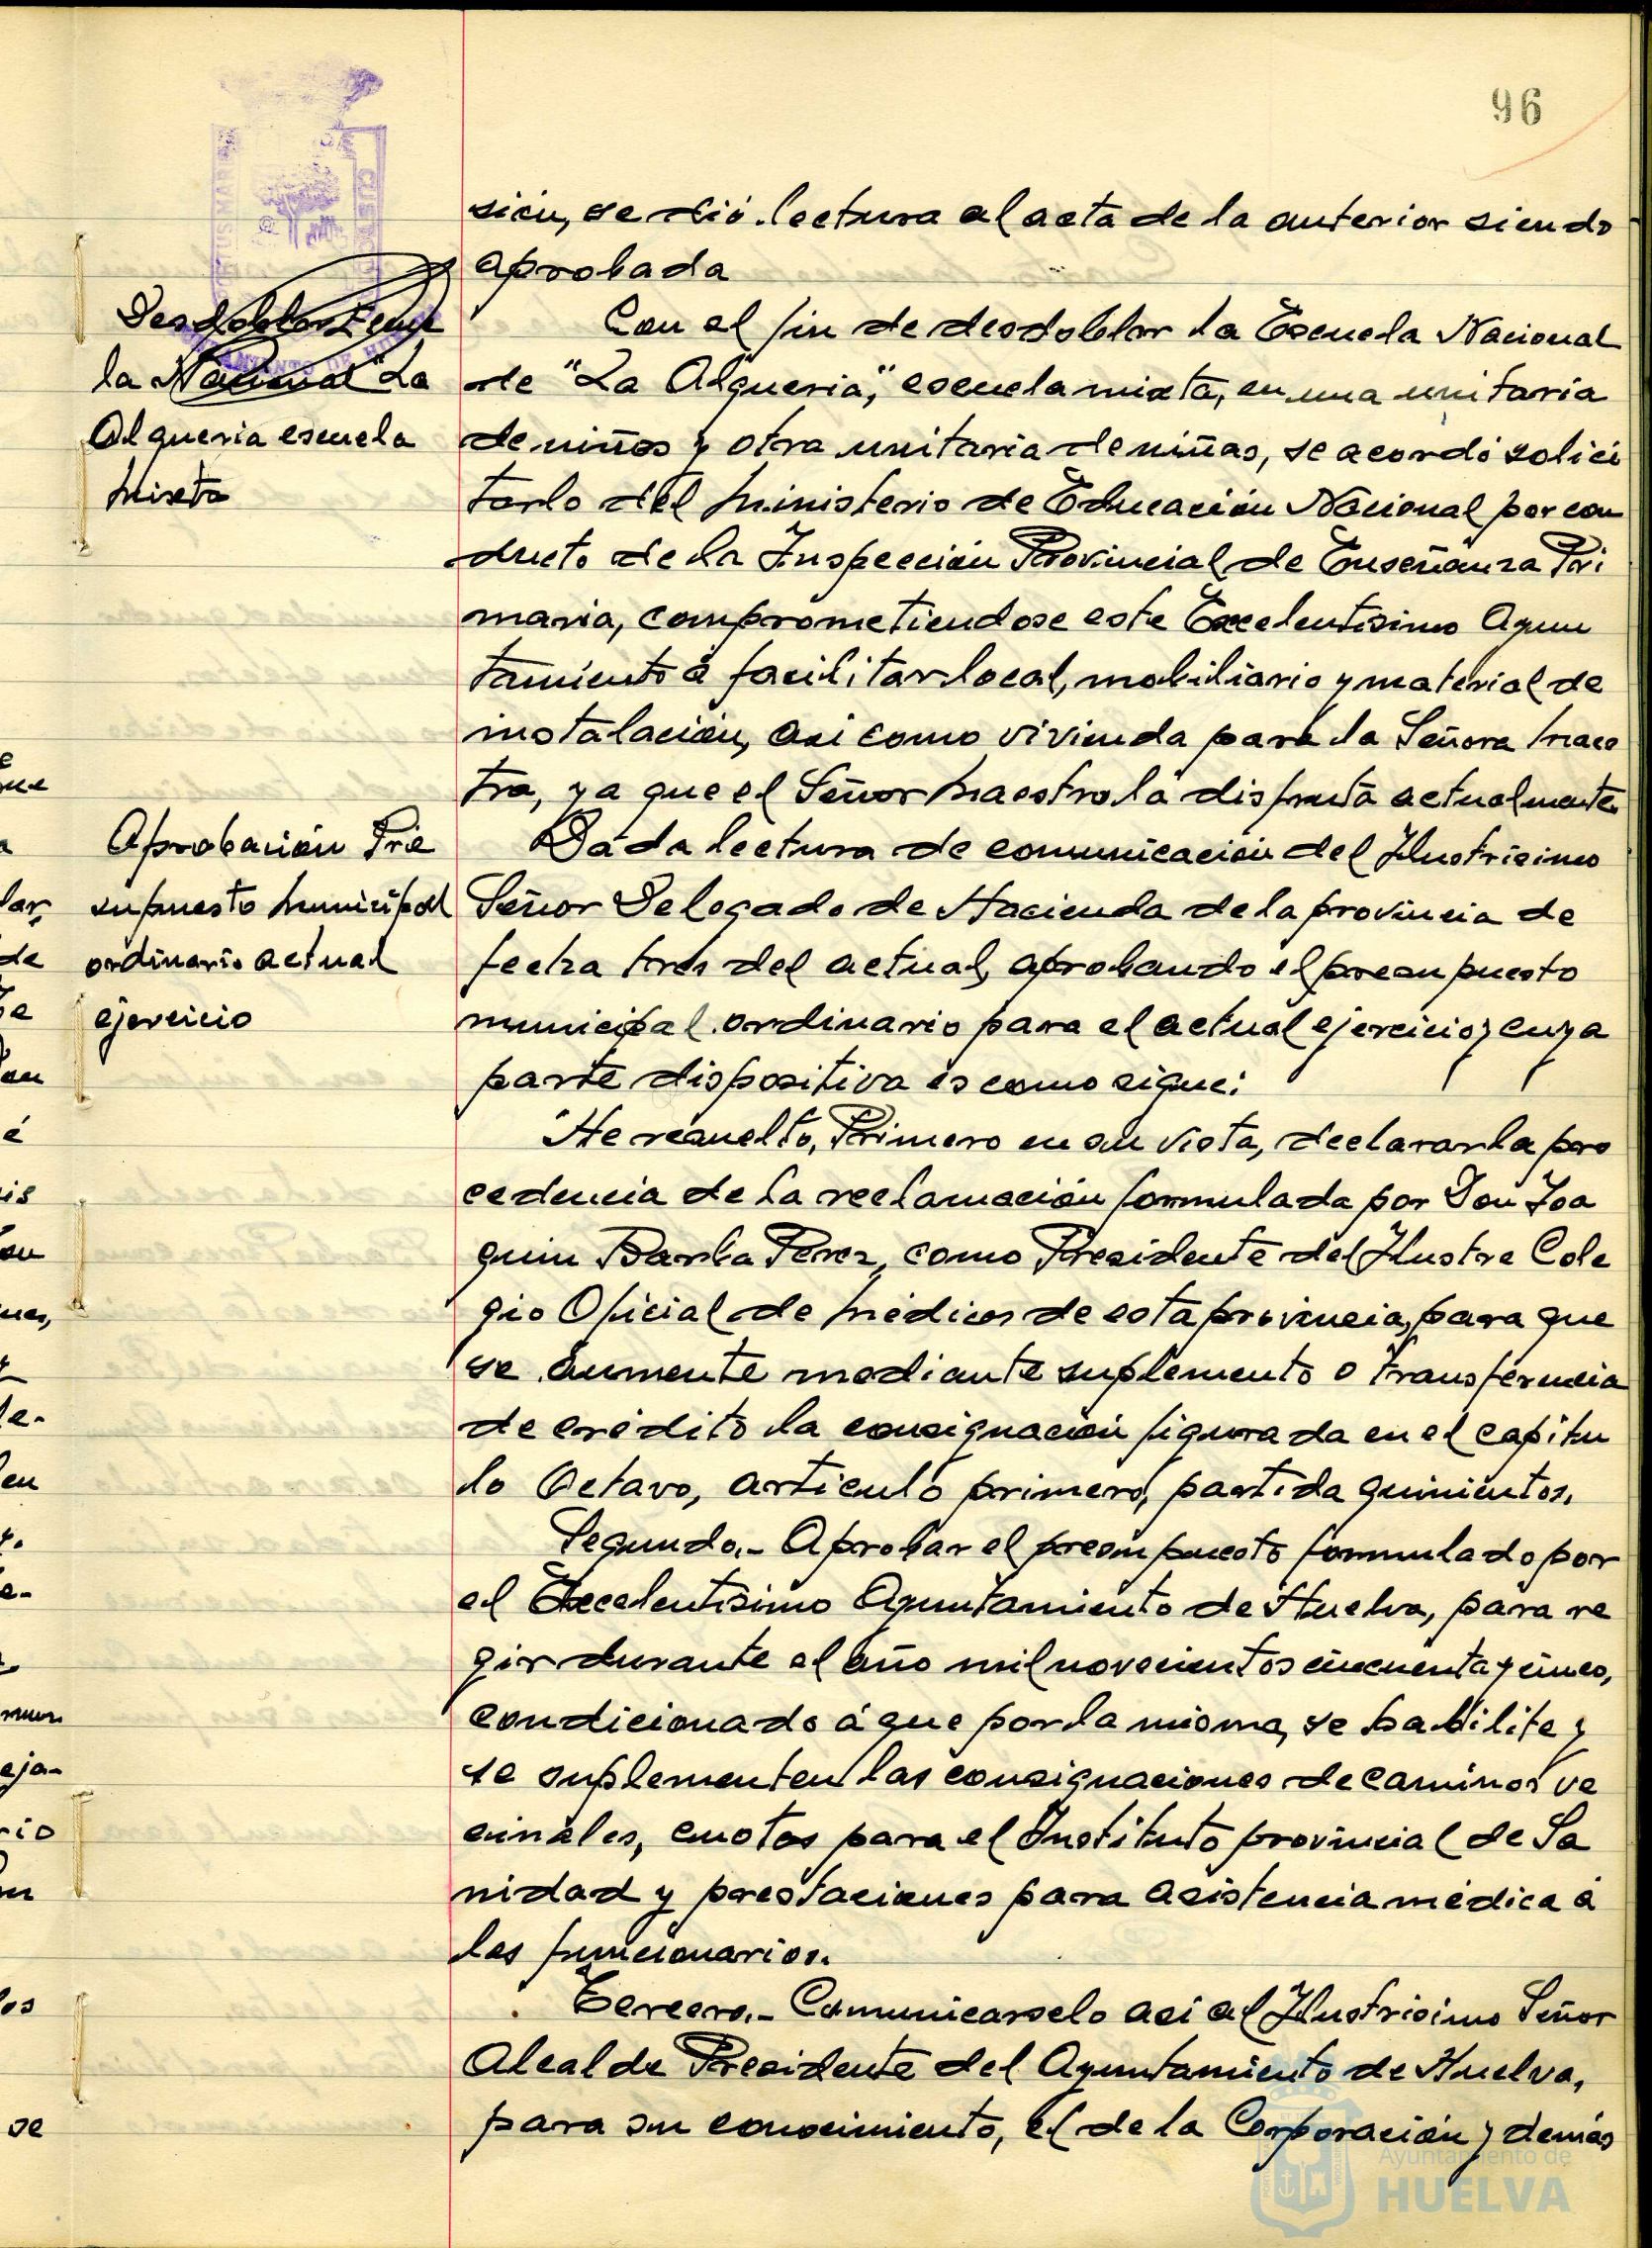 96
sión, se dió lectura al acta de la anterior siendo
aprobada
Desdoblar Escue
la Nacional "La
Alqueria escuela
Mixta
Con el fin de desdoblar la Escuela Nacional
de "La Alqueria", escuela mixta, en una unitaria
de niños y otra unitaria de niñas, se acordó solici
tarlo del Ministerio de Educación Nacional por con
ducto de la Inspección Provincial de Enseñanza Pri
maria, comprometiendose este Excelentisimo Ayun
tamiento á facilitar local, mobiliario y material de
instalación, asi como vivienda para la Señora Maes
tra, ya que el Señor Maestro la disfruta actualmente.
Aprobación Pre
supuesto Municipal
ordinario actual
ejercicio
Dada lectura de comunicación del Ilustrisimo
Señor Delegado de Hacienda de la provincia de
fecha tres del actual, aprobando el presupuesto
municipal ordinario para el actual ejercicio, cuya
parte dispositiva es como sigue:
"He resuelto, Primero en su vista, declarar la pro
cedencia de la reclamación formulada por Don Joa
quin Barba Perez, como Presidente del Ilustre Cole
gio Oficial de Médicos de esta provincia, para que
se aumente mediante suplemento o transferencia
de crédito la consignación figurada en el capitu
lo Octavo, articulo primero, partida quinientos.
Segundo.- Aprobar el presupuesto formulado por
el Excelentisimo Ayuntamiento de Huelva, para re
gir durante el año mil novecientos cincuenta y cinco,
condicionado á que por la misma, se habilite y
se suplementen las consignaciones de caminos ve
cinales, cuotas para el Instituto provincial de Sa
nidad y prestaciones para asistencia médica á
los funcionarios.
Tercero.- Comunicarselo asi al Ilustrisimo Señor
Alcalde Presidente del Ayuntamiento de Huelva,
para su conocimiento, el de la Corporación y demás
Ayuntamiento de
HUELVA